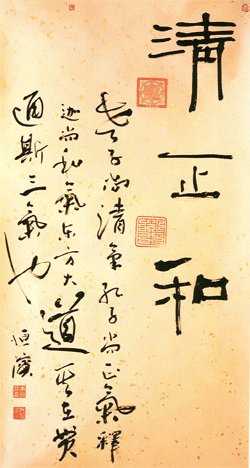 清正和
老子尚清氣孔子尚正氣釋
迦尚和氣东方大道其在貫
通斯三氣也